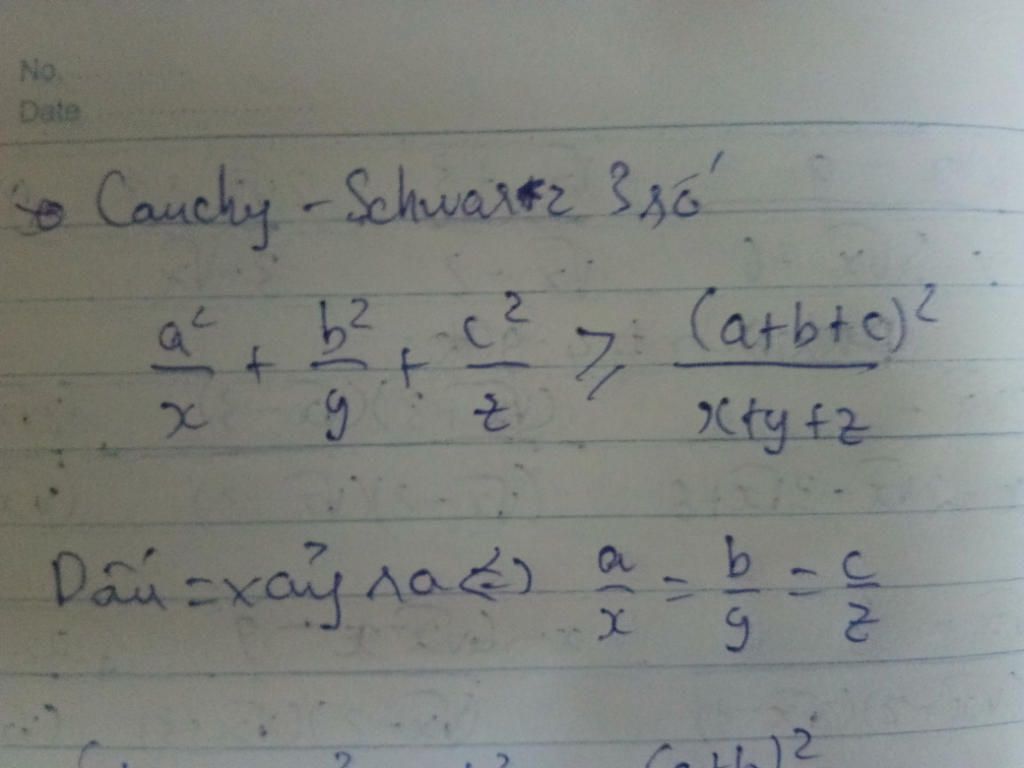 No.
Date
Cauchy - Schwartz 3 số
a²/x + b²/y + c²/z ≥ (a+b+c)²/x+y+z
Dấu = xảy ra (=) a/x = b/y = c/z
(a+b)²